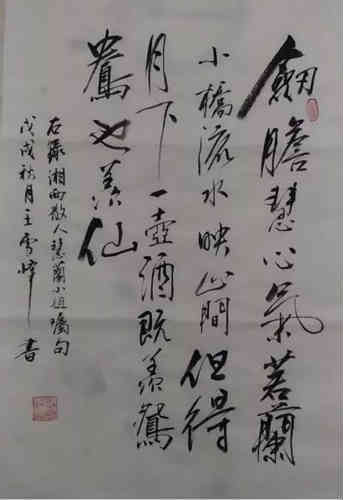 劍膽慧心氣若蘭
小橋流水映山間但得
月下一壺酒既羨鴛
鴦也羨仙
右錄湘西散人慧蘭小姐瓊句
戊戌秋月王雪峰書